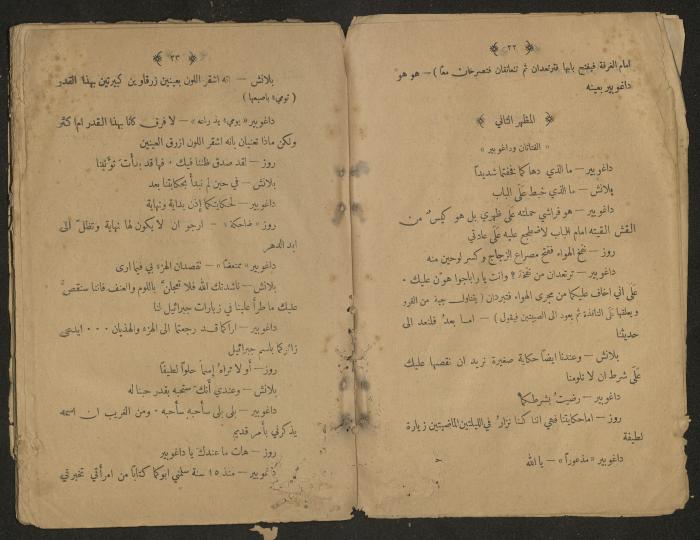 ﴿ ٢٢ ﴾
امام الغرفة فيفتح بابها فترتعدان ثم تتعانقان فتصرخان معاً) — هو هو
داغوبير بعينه
﴿ المظهر الثاني ﴾
« الفتاتان وداغوبير »
داغوبير — ما الذي دهاكما تخفتما شديداً
بلانش — ما الذي خبط على الباب
داغوبير — هو فراشي حملته على ظهري بل هو كيسٌ من
القش القيته امام الباب لاضطجع عليه على عادتي
روز — نفخ الهواء ففتح مصراع الزجاج وكسر لوحين منه
داغوبير — ترتعدان من نفخة ؟ وانت يا راباجوا هوّن عليك ٠
على اني اخاف عليكما من مجرى الهواء فتبردان (يتناول جبة من الفرو
ويعلقها على النافذة ثم يعود الى الصبيتين فيقول) — اما بعدُ فلنعد الى
حديثنا
بلانش — وعندنا ايضاً حكاية صغيرة نريد ان نقصها عليك
على شرط ان لا تلومنا
داغوبير — رضيتُ بشرطكما
روز — اما حكايتنا فهي اننا كنا نُزارُ في الليلتين الماضيتين زيارة
لطيفة
داغوبير « مذعوراً » — يا الله
﴿ ٢٣ ﴾
بلانش — انه اشقر اللون بعينين زرقاوين كبيرتين بهذا القدر
( تومئ باصبعها )
داغوبير «يومئ بذراعه» — لا فرق كانا بهذا القدر ام اكثر
ولكن ماذا تعنيان بانه اشقر اللون ازرق العينين
روز — لقد صدق ظننا فيك ٠ فها قد بدأتَ تؤنبنا
بلانش — في حين لم نبدأ بحكايتنا بعد
داغوبير — لحكايتكما إذن بداية ونهاية
روز « ضاحكة » — ارجو ان لا يكون لها نهاية وتظلّ الى
ابد الدهر
داغوبير « ممتعضاً » — تقصدان الهزء بي فيما ارى
بلانش — ناشدتك الله فلا تعجلنّ باللوم والعنف فاننا سنقصّ
عليك ما طرأ علينا في زيارات جبرائيل لنا
داغوبير — اراكما قد رجعتما الى الهزء والهذيان ٠٠٠ ايدعى
زائركما باسم جبرائيل
روز — أو لا تراهُ إسماً حلواً لطيفاً
بلانش — وعندي أنك ستحبه بقدر حبنا له
داغوبير — بلى بلى سأحبه سأحبه ٠ ومن الغريب ان اسمه
يذكرني بأمر قديم
روز — هات ما عندك يا داغوبير
داغوبير — منذ ١٥ سنة سلمني ابوكما كتاباً من امرأتي تخبرني